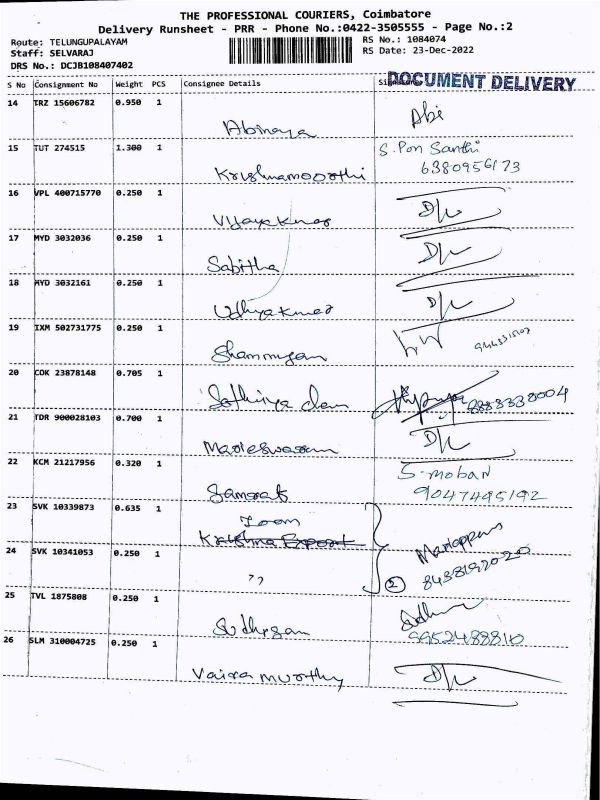 THE PROFESSIONAL COURIERS, Coimbatore
Delivery Runsheet - PRR - Phone No.:0422-3505555 - Page No.:2
Route: TELUNGUPALAYAM
Staff: SELVARAJ
DRS No.: DCJB108407402
RS No.: 1084074
RS Date: 23-Dec-2022
S No Consignment No Weight PCS Consignee Details
DOCUMENT DELIVERY
14 TRZ 15606782 0.950 1
Abinaya Abi
15 TUT 274515 1.300 1 S. Pon Santhi
Krishnamoorthi 6380956173
16 VPL 400715770 0.250 1
Vijayakumar D/L
17 MYD 3032036 0.250 1
Sabitha D/L
18 MYD 3032161 0.250 1
Udhyakumar D/L
19 IXM 502731775 0.250 1
Shanmugan
20 COK 23878148 0.705 1
8883338004
21 TDR 900028103 0.700 1
D/L
22 KCM 21217956 0.320 1 S-mohan
9047495192
23 SVK 10339873 0.635 1
Zoom
Krishna Export
24 SVK 10341053 0.250 1 Mariappan
" 2 8438192020
25 TVL 1875808 0.250 1
9952488810
26 SLM 310004725 0.250 1
Vaira murthy D/L